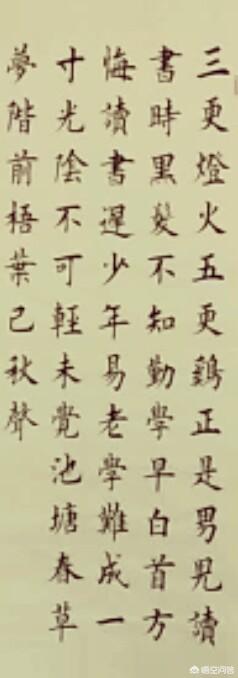 三更燈火五更鷄正是男兒讀
書時黑髮不知勤學早白首方
悔讀書遲少年易老學難成一
寸光陰不可輕未覺池塘春草
夢階前梧葉已秋聲
悟空问答